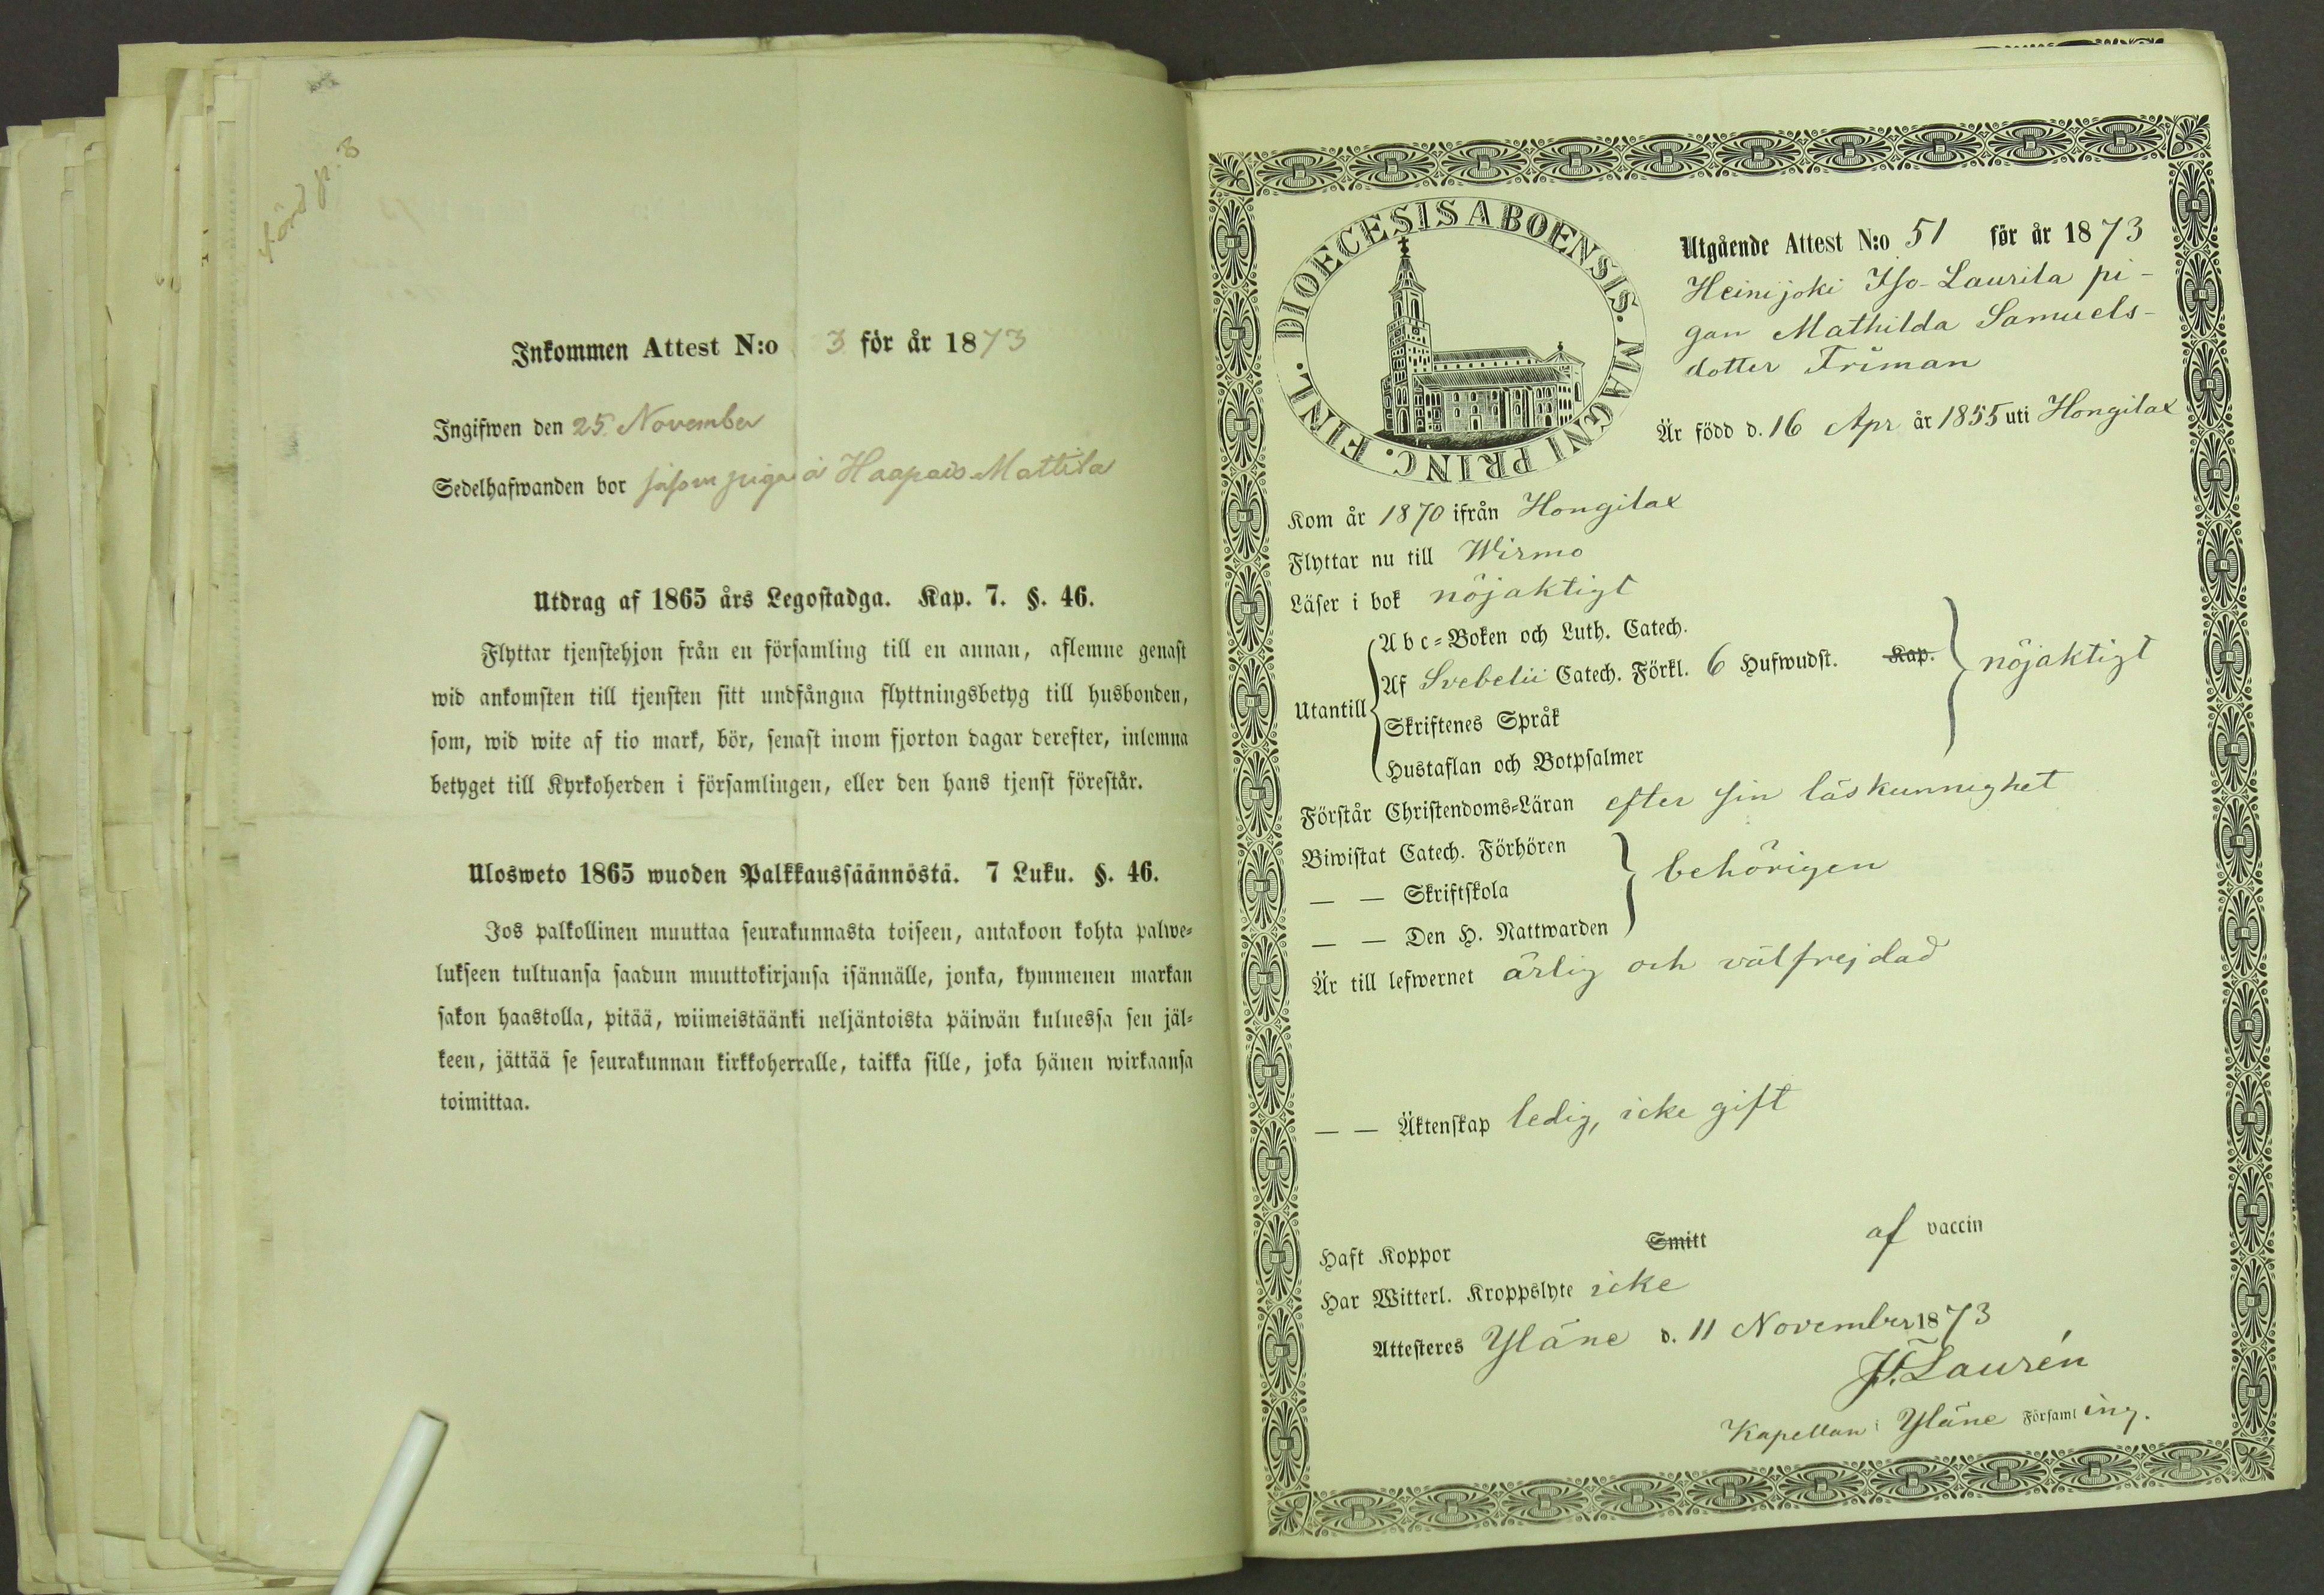 förd p. 3
Inkommen Attest N:o 3 för år 1873
Ingifwen den 25 November
Sedelhafwanden bor såsom piga å Haapais Mattila
Utdrag af 1865 års Legostadga. Kap. 7. §. 46.
Flyttar tjenstehjon från en församling till en annan, aflemne genast
wid ankomsten till tjensten sitt undfångna flyttningsbetyg till husbonden,
som, wid wite af tio mark, bör, senast inom fjorton dagar derefter, inlemna
betyget till Kyrkoherden i församlingen, eller den hans tjenst förestår.
Ulosweto 1865 wuoden Palkkaussäännöstä. 7 Luku. §. 46.
Jos palkollinen muuttaa seurakunnasta toiseen, antakoon kohta palwe=
lukseen tultuansa saadun muuttokirjansa isännälle, jonka, kymmenen markan
sakon haastolla, pitää, wiimeistäänki neljäntoista päiwän kuluessa sen jäl=
keen, jättää se seurakunnan kirkkoherralle, taikka sille, joka hänen wirkaansa
toimittaa.
DIOECESIS ABOENSIS. MAGNI PRINC. FINL.
Utgående Attest N:o 51 för år 1873
Heinijoki Iso-Laurila pi-
gan Mathilda Samuels-
dotter Friman
Är född d. 16 Apr år 1855 uti Hongilax
Kom år 1870 ifrån Hongilax
Flyttar nu till Wirmo
Läser i bok nöjaktigt
Utantill
Abc=Boken och Luth. Catech.
Af Svebelii Catech. Förkl. 6 Hufwudst. Kap.
Skriftenes Språk
Hustaflan och Botpsalmer
nöjaktigt
Förstår Christendoms=Läran efter sin läskunnighet
Biwistat Catech. Förhören
— — Skriftskola
— — Den H. Nattwarden
behörigen
Är till lefwernet ärlig och välfrejdad
— — Äktenskap ledig, icke gift
Haft Koppor Smitt af vaccin
Har Witterl. Kroppslyte icke
Attesteres Yläne d. 11 November 1873
F. Laurén
Kapellan i Yläne Församling.